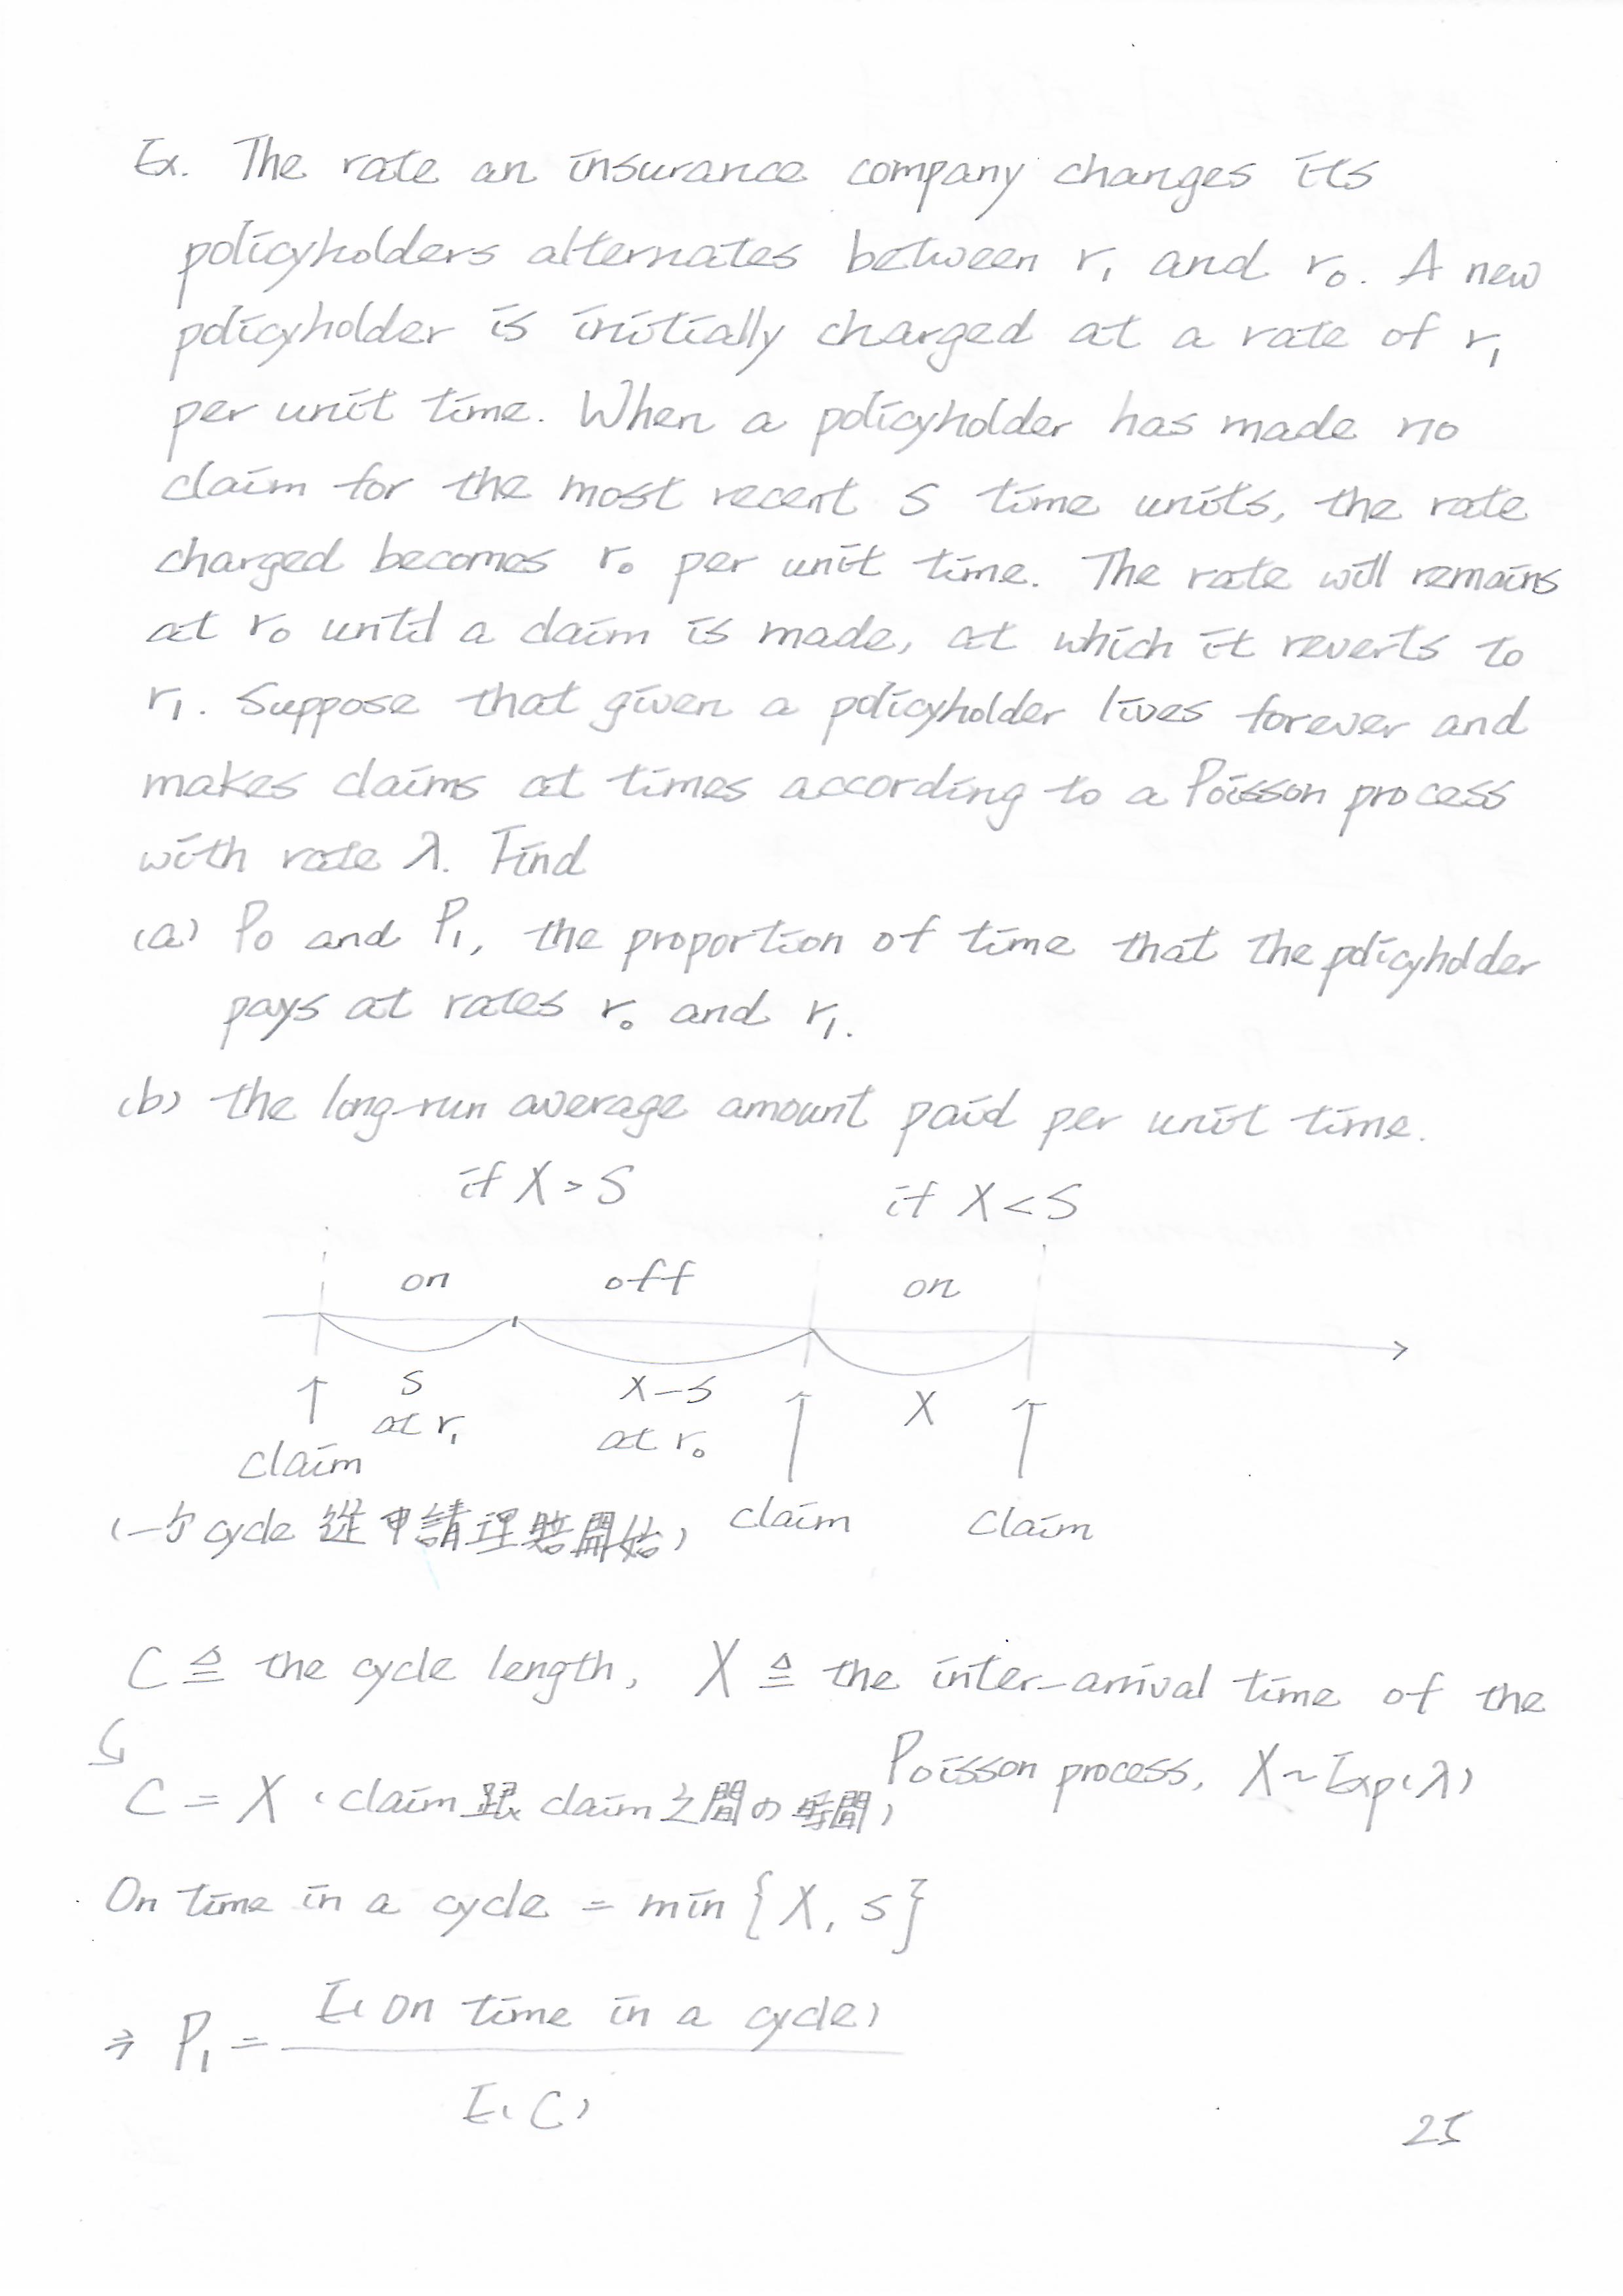 Ex. The rate an insurance company changes its
policyholders alternates between r₁ and r₀. A new
policyholder is initially charged at a rate of r₁
per unit time. When a policyholder has made no
claim for the most recent s time units, the rate
charged becomes r₀ per unit time. The rate will remains
at r₀ until a claim is made, at which it reverts to
r₁. Suppose that given a policyholder lives forever and
makes claims at times according to a Poisson process
with rate λ. Find
(a) P₀ and P₁, the proportion of time that the policyholder
pays at rates r₀ and r₁.
(b) the long-run average amount paid per unit time.
if X > S if X < S
on off on
s X-s X
at r₁ at r₀
claim claim claim
(一个 cycle 從申請理賠開始)
C ≜ the cycle length, X ≜ the inter-arrival time of the
Poisson process, X ~ Exp(λ)
↳ C = X (claim 跟 claim 之間の時間)
On time in a cycle = min {X, s}
⇒ P₁ = E(On time in a cycle) / E(C)
25